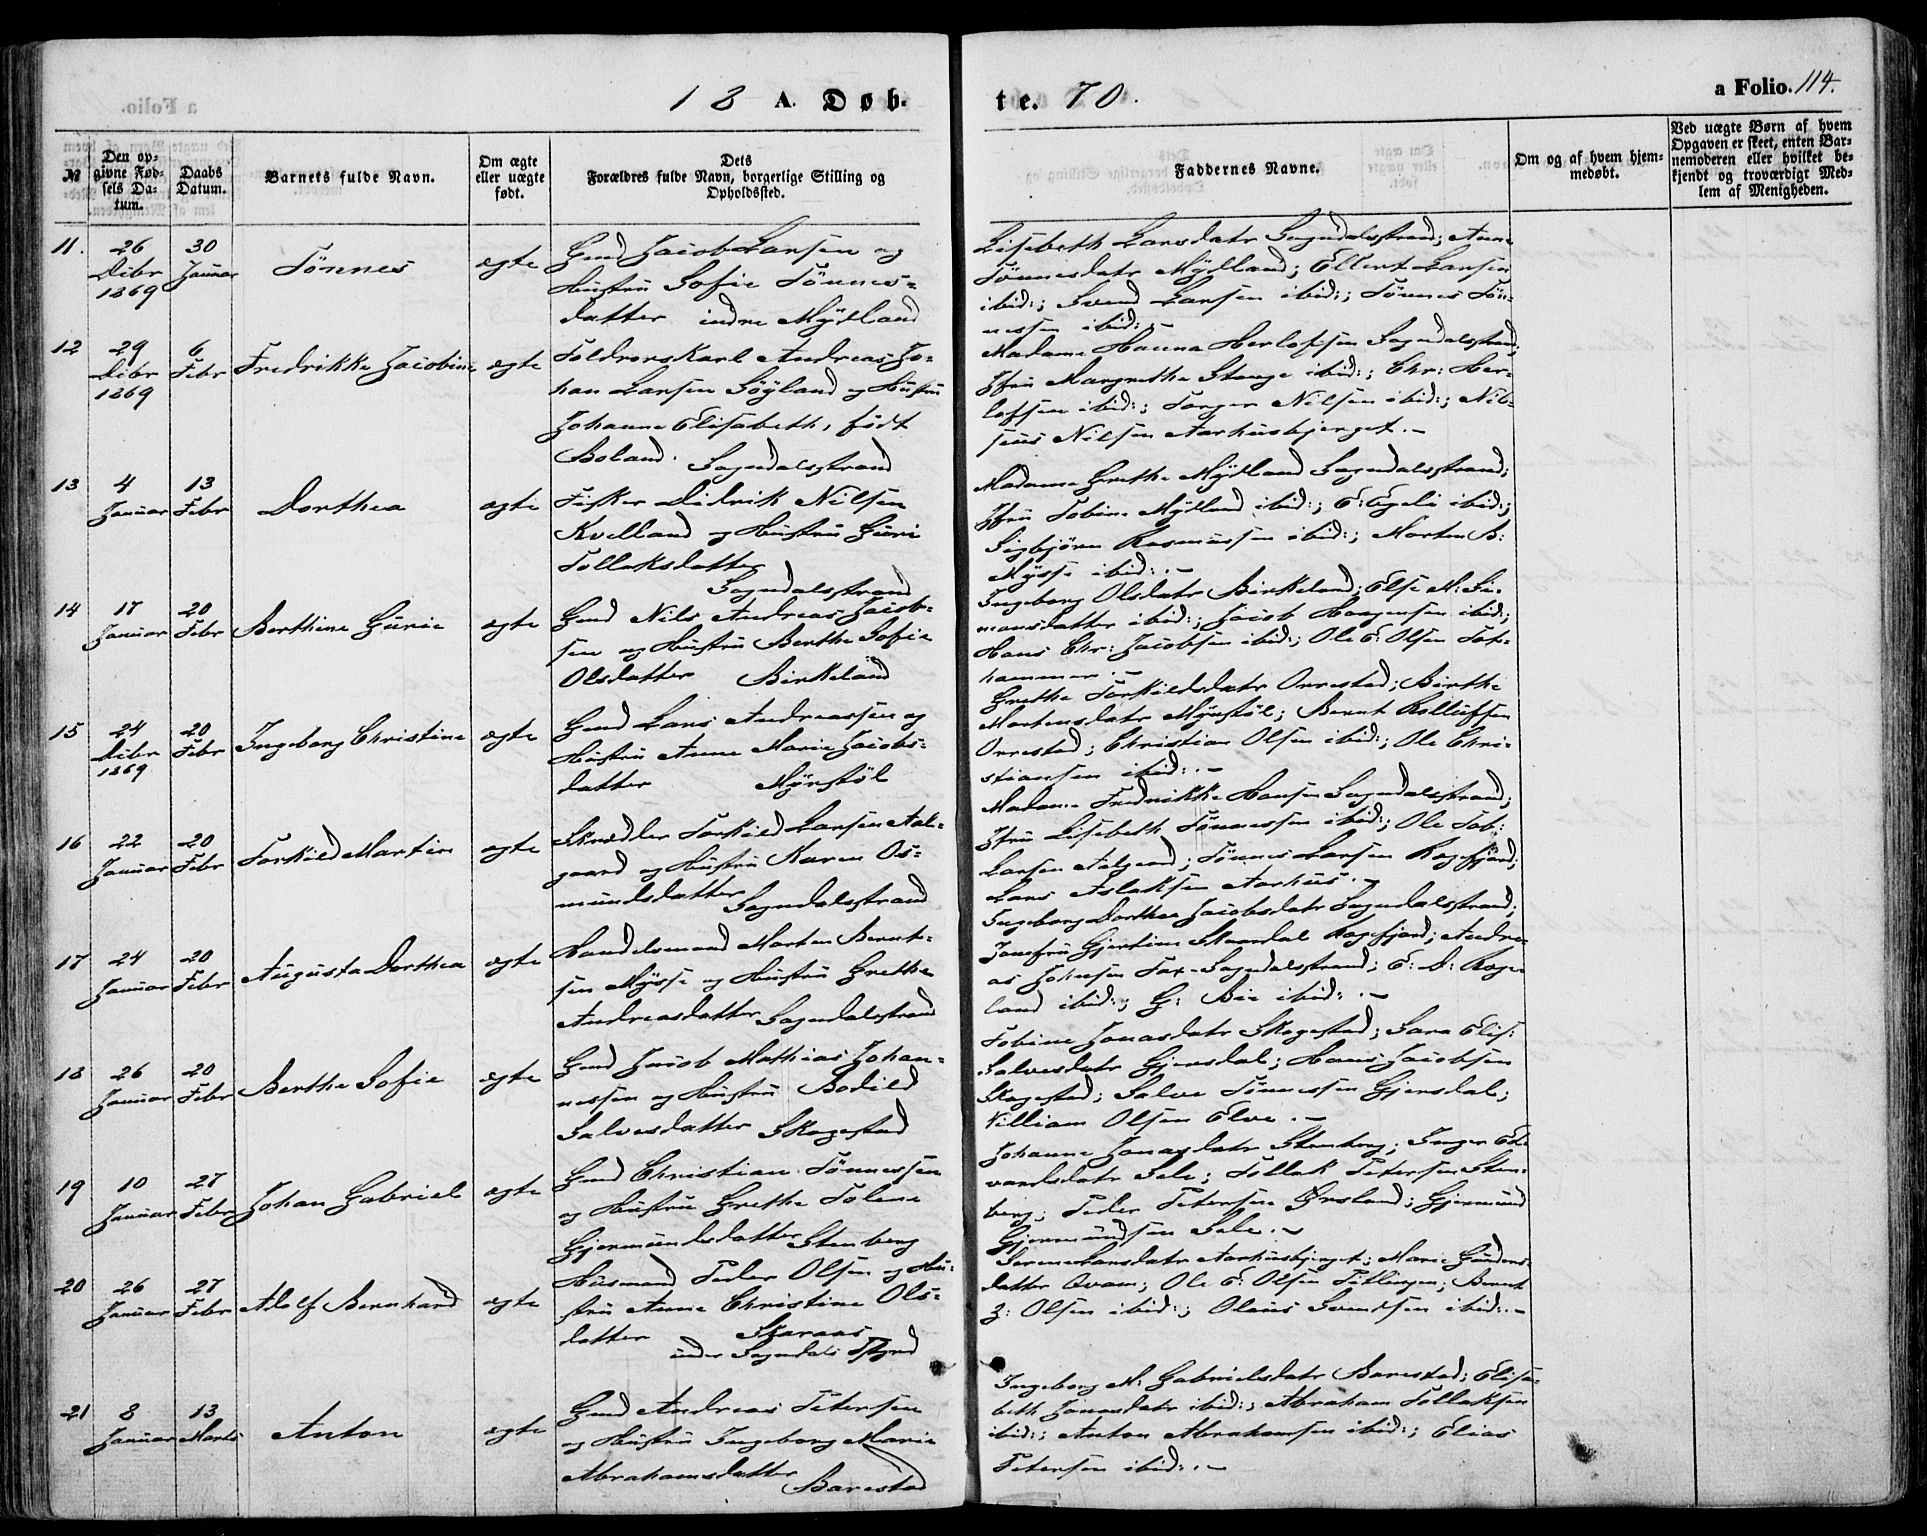 18 A. Døb-
te. 70.
a Folio. 114.
№
Den op-
givne Fød-
sels Da-
tum.
Daabs
Datum.
Barnets fulde Navn.
Om ægte
eller uægte
født.
Dets
Forældres fulde Navn, borgerlige Stilling og
Opholdssted.
Faddernes Navne.
Om og af hvem hjem-
medøbt.
Ved uægte Børn af hvem
Opgaven er skeet, enten Bar-
nemoderen eller hvilket be-
kjendt og troværdigt Med-
lem af Menigheden.
11.
26
Decbr
1869
30
Januar
Tönnes
ægte
Gmd Jacob Larsen og
Hustru Sofie Tönnes-
datter indre Mydland
Lisebeth Larsdatr Sogndalsstrand; Anne
Tönnesdatr Mydland; Ellert Larsen
ibid:; Svend Larsen ibid:; Tönnes Tön-
nessen ibid:-
12
29
Decbr
1869
6
Febr
Fredrikke Jacobine
ægte
Toldrorskarl Andreas Jo-
han Larsen Böyland og Hustru
Johanne Elisabeth, født
Boland. Sogndalsstrand
Madame Hanna Herlofsen Sogndalsstrand;
Jfru Margrethe Stange ibid:; Chr: Her-
lofsen ibid:; Torger Nilsen ibid:; Nil-
seus Nilsen Aarhusbjerget.-
13
4
Januar
13
Febr
Dorthea
ægte
Fisker Didrik Nilsen
Kvelland og Hustru Guri
Tollaksdatter
Sogndalsstrand
Madame Grethe Mydland Sogndalsstrand;
Jfru Tobine Mydland ibid:; E: Egeli ibid:;
Sigbjörn Rasmussen ibid:; Morten B:
Mysse ibid:.-
14
17
Januar
20
Febr
Berthine Gurie
ægte
Gmd Nils Andreas Jacob-
sen og Hustru Berthe Sofie
Olsdatter Birkeland
Ingeborg Olsdatr Birkeland; Else M: Si-
monsdatter ibid:; Jacob Haagensen ibid:;
Hans Chr: Jacobsen ibid:; Ole E: Olsen Tox-
hammer.-
15
24
Decbr
1869
20
Febr
Ingeborg Christine
ægte
Gmd Lars Andreassen og
Hustru Anne Marie Jacobs-
datter Myrstöl
Grethe Torkildsdatr Orrestad; Birthe
Mortensdatr Myrstöl; Bernt Rolluffsen
Orrestad; Christian Olsen ibid:; Ole Chri-
stiansen ibid:.-
16
22
Januar
20
Febr
Torkild Martin
ægte
Skrædder Torkild Larsen Aal-
gaard og Hustru Karen Os-
mundsdatter Sogndalsstrand
Madame Fredrikke Hansen Sogndalsstrand;
Jfru Lisebeth Tönnessen ibid:; Ole Tob:
Larsen Aalgaard; Tönnes Larsen Ragefjord;
Lars Aslaksen Aarhus.-
17
24
Januar
20
Febr
Augusta Dorthea
ægte
Handelsmand Morten Bernt-
sen Mysse og Hustru Grethe
Andreasdatter Sogndalsstrand
Ingeborg Dorthea Jacobsdatr Sogndalsstrand;
Jomfru Gjertine Skaardal Ragefjord; Andre-
as Johnsen Tax-Sogndalsstrand; E: D: Roge-
land ibid:; G: Bie ibid:.-
18
26
Januar
20
Febr
Berthe Sofie
ægte
Gmd Jacob Mathias Johan-
nessen og Hustru Bodild
Salvesdatter Skogestad
Tobine Jonasdatr Skogestad; Sara Elis:
Salvesdatr Gjersdal; Hans Jacobsen
Skogestad; Salve Tönnessen Gjersdal;
Villiam Olsen Elve.-
19
10
Januar
27
Febr
Johan Gabriel
ægte
Gmd Christian Tönnessen
og Hustru Grethe Tolene
Gjermundsdatter Stenberg
Johanne Jonasdatr Stenberg; Inger Ed-
vardsdatr Sele; Tollak Petersen Sten-
berg; Peder Petersen Örsland; Gjermund
Gjermundsen Sele.-
20
26
Januar
27
Febr
Adolf Bernhard
ægte
Husmand Peder Olsen og Hu-
stru Anne Christine Ols-
datter Skaraas
under Sogndals Pstgrd
Serene Larsdatr Aarhusbjerget; Marie Gunders-
datter Qvam; Ole E: Olsen Titlingen; Bernt
Z: Olsen ibid:; Olaus Svendsen ibid:.-
21
8
Januar
13
Marts
Anton
ægte
Gmd Andreas Petersen
og Hustru Ingeborg Marie
Abrahamsdatter
Barestad
Ingeborg M: Gabrielsdatr Barestad; Elisa-
beth Jonasdatr ibid:; Abraham Tollaksen
ibid:; Anton Abrahamsen ibid:; Elias
Petersen ibid:.-